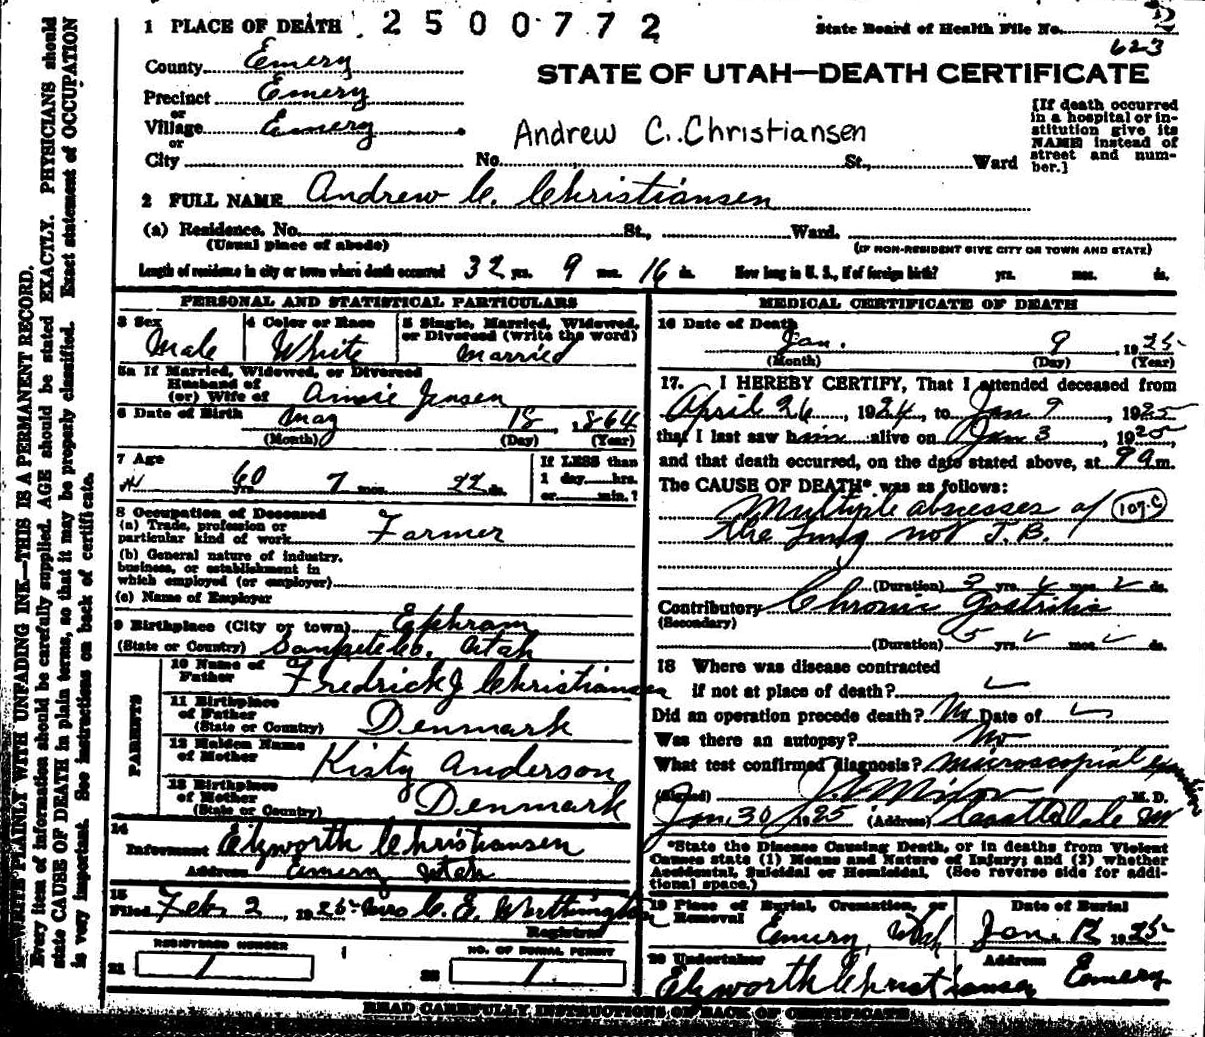 1 PLACE OF DEATH 2500772
State Board of Health File No. 2
623
County Emery
STATE OF UTAH—DEATH CERTIFICATE
Precinct Emery
or
Village Emery
or
City No. St., Ward
Andrew C. Christiansen
[If death occurred
in a hospital or in-
stitution give its
NAME instead of
street and num-
ber.]
2 FULL NAME Andrew C. Christiansen
(a) Residence. No. St., Ward.
(Usual place of abode)
(IF NON-RESIDENT GIVE CITY OR TOWN AND STATE)
Length of residence in city or town where death occurred 32 yrs. 9 mos. 16 ds. How long in U. S., if of foreign birth? yrs. mos. ds.
PERSONAL AND STATISTICAL PARTICULARS
3 Sex
Male
4 Color or Race
White
5 Single, Married, Widowed,
or Divorced (write the word)
Married
5a If Married, Widowed, or Divorced
Husband of
(or) Wife of Annie Jensen
6 Date of Birth May 18, 1864
(Month) (Day) (Year)
7 Age
60 yrs. 7 mos. 22 ds.
If LESS than
1 day hrs.
or min.?
8 Occupation of Deceased
(a) Trade, profession or
particular kind of work Farmer
(b) General nature of industry,
business, or establishment in
which employed (or employer)
(c) Name of Employer
9 Birthplace (City or town) Ephram
(State or Country) Sanpete Co. Utah
PARENTS
10 Name of
Father Fredrick J Christiansen
11 Birthplace
of Father
(State or Country) Denmark
12 Maiden Name
of Mother Kisty Anderson
13 Birthplace
of Mother
(State or Country) Denmark
14
Informant Elzworth Christiansen
Address Emery Utah
15
Filed Feb 2, 1925 Mrs C. E. Worthington
Registrar
REGISTERED NUMBER
21 1
NO. OF BURIAL PERMIT
22 1
MEDICAL CERTIFICATE OF DEATH
16 Date of Death
Jan. 9, 1925
(Month) (Day) (Year)
17. I HEREBY CERTIFY, That I attended deceased from
April 26, 1924, to Jan 9, 1925
that I last saw him alive on Jan 3, 1925
and that death occurred, on the date stated above, at 9 a m.
The CAUSE OF DEATH* was as follows:
Multiple abscesses of 107c
the lung not T.B.
(Duration) yrs. mos. ds.
Contributory Chronic Gastritis
(Secondary)
(Duration) yrs. mos. ds.
18 Where was disease contracted
if not at place of death?
Did an operation precede death? No Date of
Was there an autopsy? No
What test confirmed diagnosis? microscopial
(Signed) M. D.
Jan 30, 1925 (Address) Castle Dale
*State the Disease Causing Death, or in deaths from Violent
Causes state (1) Means and Nature of Injury; and (2) whether
Accidental, Suicidal or Homicidal. (See reverse side for addi-
tional space.)
19 Place of Burial, Cremation, or
Removal
Emery, Utah
Date of Burial
Jan. 12 1925
20 Undertaker
Elzworth Christiansen
Address
Emery
READ CAREFULLY INSTRUCTIONS ON BACK OF CERTIFICATE
WRITE PLAINLY WITH UNFADING INK—THIS IS A PERMANENT RECORD.
Every item of information should be carefully supplied. AGE should be stated EXACTLY. PHYSICIANS should
state CAUSE OF DEATH in plain terms, so that it may be properly classified. Exact statement of OCCUPATION
is very important. See instructions on back of certificate.